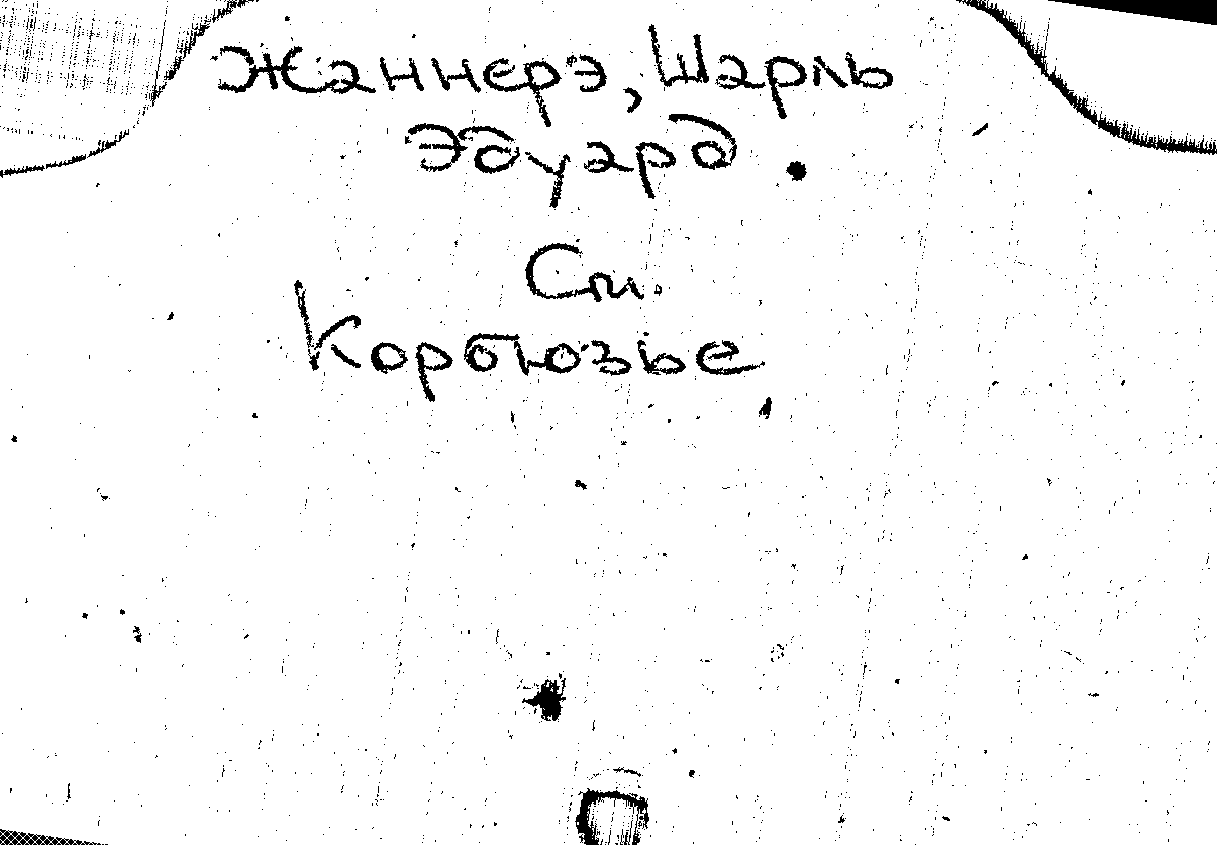 Жаннерэ, Шарль
Эдуард.
См.
Корбюзье